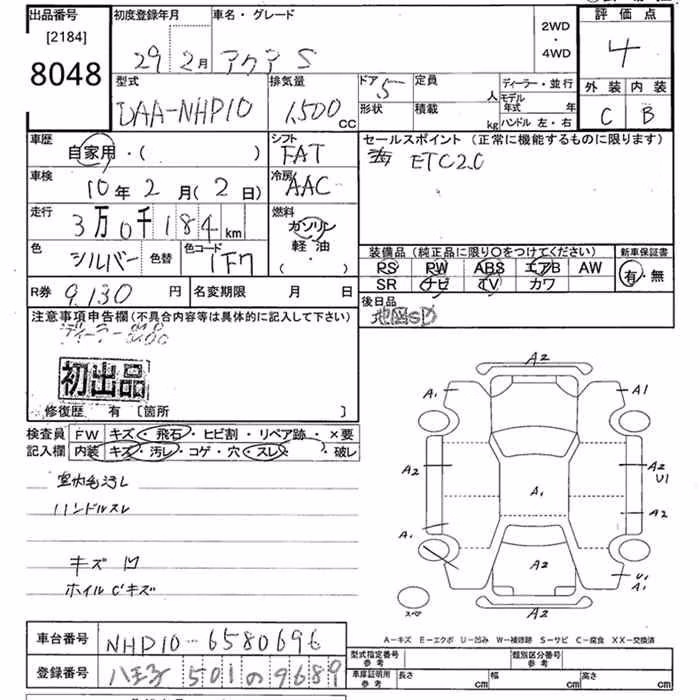 出品番号 [2184] 8048
初度登録年月 29年 2月
車名・グレード アクア S
2WD・4WD
評価点 4
外装 C 内装 B
型式 DAA-NHP10
排気量 1,500cc
ドア 5 形状
定員 人 積載 kg
ディーラー・並行
モデル年式 年
ハンドル 左・右
車歴 自家用・( )
シフト FAT
セールスポイント (正常に機能するものに限ります)
ETC2.0
車検 10年 2月 (2日)
冷房 AAC
走行 3万0千184km
燃料 ガソリン・軽油・( )
色 シルバー 色替 色コード 1F7
装備品 (純正品に限り〇をつけてください)
新車保証書 有・無
PS PW ABS エアB AW
SR ナビ TV カワ
R券 9,130円
名変期限 月 日
後日品
地図SD
注意事項申告欄 (不具合内容等は具体的に記入して下さい)
初出品
修復歴 有 [箇所 ]
検査員記入欄
FW キズ・飛石・ヒビ割・リペア跡・×要
内装 キズ・汚レ・コゲ・穴・スレ・破レ
室内毛汚レ
ハンドルスレ
キズ 凹
ホイルC'キズ
A2
A1 A1
A2 A2 U1
A1 A2
A1
A2 U1 A1
スペア
A2
A-キズ E-エクボ U-凹み W-補修跡 S-サビ C-腐食 XX-交換済
車台番号 NHP10-6580696
型式指定番号 参考
類別区分番号 参考
登録番号 八王子 501 の 9689
車庫証明用 参考 長さ cm 幅 cm 高さ cm